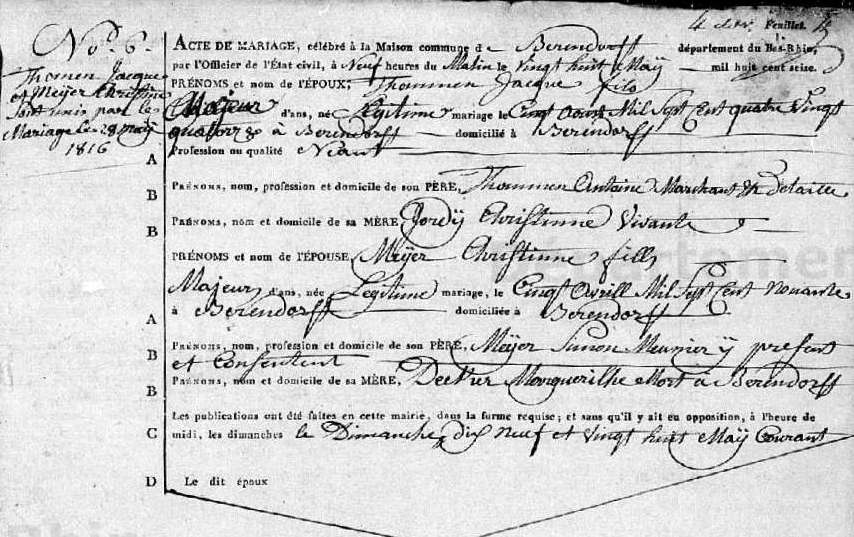 4 Feuillet.
No. 6.
Thomen Jacque
et Meÿer Christinne
Sont unis par le
Mariage le 28 maÿ
1816
ACTE DE MARIAGE, célébré à la Maison commune d Berendorff département du Bas-Rhin,
par l'Officier de l'État civil, à Neuf heures du Matin le Vingt huit Maÿ mil huit cent seize.
PRÉNOMS et nom de l'ÉPOUX, Thommen Jacque fils
Majeur d'ans, né Legitime mariage le Cinq Aout Mil Sept Cent quatre Vingt
quatorze à Berendorff domicilié à Berendorff
A Profession ou qualité Néant
B PRÉNOMS, nom, profession et domicile de son PÈRE, Thommen Antoine Marchant
B PRÉNOMS, nom et domicile de sa MÈRE Christinne Vivante
PRÉNOMS et nom de l'ÉPOUSE Meÿer Christinne fille
Majeur d'ans, née Legitime mariage, le Cinq Avrill Mil Sept Cent Nonante
A à Berendorff domiciliée à Berendorff
B PRÉNOMS, nom, profession et domicile de son PÈRE, Meÿer Simon Meunier ÿ present
et Consentent
B PRÉNOMS, nom et domicile de sa MÈRE, Decker Mort à Berendorff
Les publications ont été faites en cette mairie, dans la forme requise; et sans qu'il y ait eu opposition, à l'heure de
C midi, les dimanches le Dimanche dix Neuf et Vingt huit Maÿ Courant
D Le dit époux